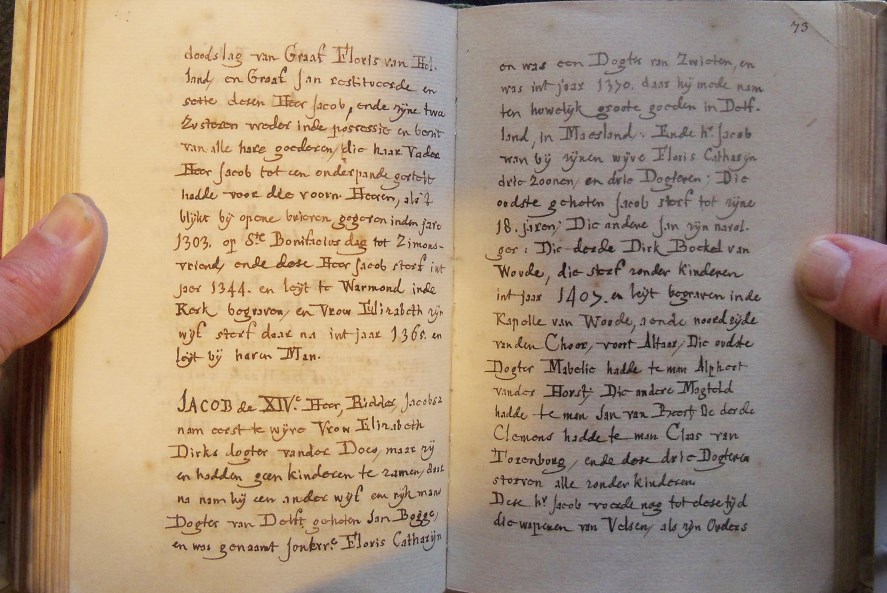 doodslag van Graaf Floris van Hol-
land, en Graaf Jan restitueerde en
sette desen Heer Jacob, ende zijne twee
Zusteren weder inde possessie en besit
van alle hare goederen, die haar Vader
Heer Jacob tot een onderpande gestelt
hadde voor die voorn. Heeren, als 't
blijkt bij opene brieven gegeven inden jare
1303. op Ste. Bonifacius dag tot Zimons-
vriend, ende dese Heer Jacob sterf int
jaer 1344. en leijt te Warmond inde
Kerk begraven, en Vrow Elizabeth zijn
wijf sterf daar na int jaar 1365. en
leijt bij haren Man.
JACOB de XIVe. Heer, Ridder, Jacobsz
nam eerst te wijve Vrow Elizabeth
Dirks dogter vander Does, maar zij
en hadden geen kinderen te zamen, daar
na nam hij een ander wijf een rijk mans
Dogter van Delft, geheten Jan Bogge,
en was genaamt Jonkvre. Floris Catharijn
73
en was een Dogter van Zwieten, en
was int jaar 1370. daar hij mede nam
ten huwelijk groote goeden in Delf-
land, in Maesland. Ende hr. Jacob
wan bij zijnen wijve Floris Catharijn
drie zoonen, en drie Dogteren; Die
oudste geheten Jacob sterf tot zijne
18. jaren; Die andere Jan zijn navol-
ger: Die derde Dirk Boekel van
Woude, die sterf zonder kinderen
int jaar 1407. en leijt begraven inde
Kapelle van Woude, aende noord zijde
vanden Choor, voort Altaar, Die oudste
Dogter Mabelie hadde te man Alphert
vander Horst; Die andere Magteld
hadde te man Jan van Heest De derde
Clemens hadde te man Claas van
Torenburg, ende dese drie Dogteren
storven alle zonder kinderen.
Dese hr. Jacob voerde nog tot dese tijd
die wapenen van Velsen, als zijn Ouders